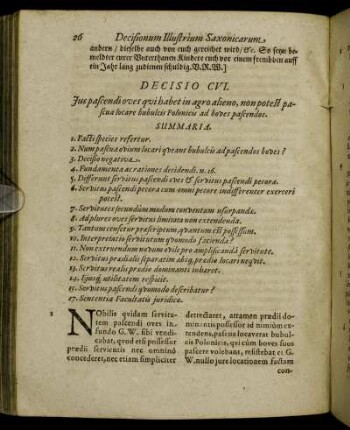 26 Decisionum Illustrium Saxonicarum
andern / dieselbe auch von euch gereichet wird / &c. So seyn bemeldter eurer Unterthanen Kindere euch vor einem frembben auff
ein Jahr lang zudienen schuldig. V.R.W.]
DECISIO CVI.
Jus pascendi oves qvi habet in agro alieno, non potest pascua locare bubulcis Polonicis ad boves pascendos.
SUMMARIA.
1. Facti species refertur.
2. Num pascua ovium locari qveant bubulcis ad pascendos boves?
3. Decisio negativa.
4. Fundamenta ac rationes decidendi. n. 16.
5. Differunt servitus pascendi oves & servitus pascendi pecora.
6. Servitus pascendi pecora cum omni pecore indifferenter exerceri
potest.
7. Servitutes secundum modum conventum usurpandæ.
8. Ad plures oves servitus limitata non extendenda.
9. Tantum censetur præscriptum, qvantum est possessum.
10. Interpretatio servitutum qvomodo facienda?
11. Non extruendum novum ovile pro amplificandâ servitute.
12. Servitus prædialis separatim absq; prædio locari neqvit.
13. Servitus realis prædio dominanti inhæret.
14. Ejusq; utilitatem respicit.
15. Servitus pascendi qvomodo describatur?
17. Sententia Facultatis juridicæ.
1
NObilis qvidam servitutem pascendi oves in
fundo G.W. sibi vendicabat, qvod etsi possessor
prædii servientis nec omninò
concederet, nec etiam simpliciter
detrectaret, attamen prædii dominantis possessor ad nimiùm extendens, pascua locaverat bubulcis Polonicis, qui cùm boves suos
pascere volebant, resistebat et G.
W. nullo jure locationem factam
con-